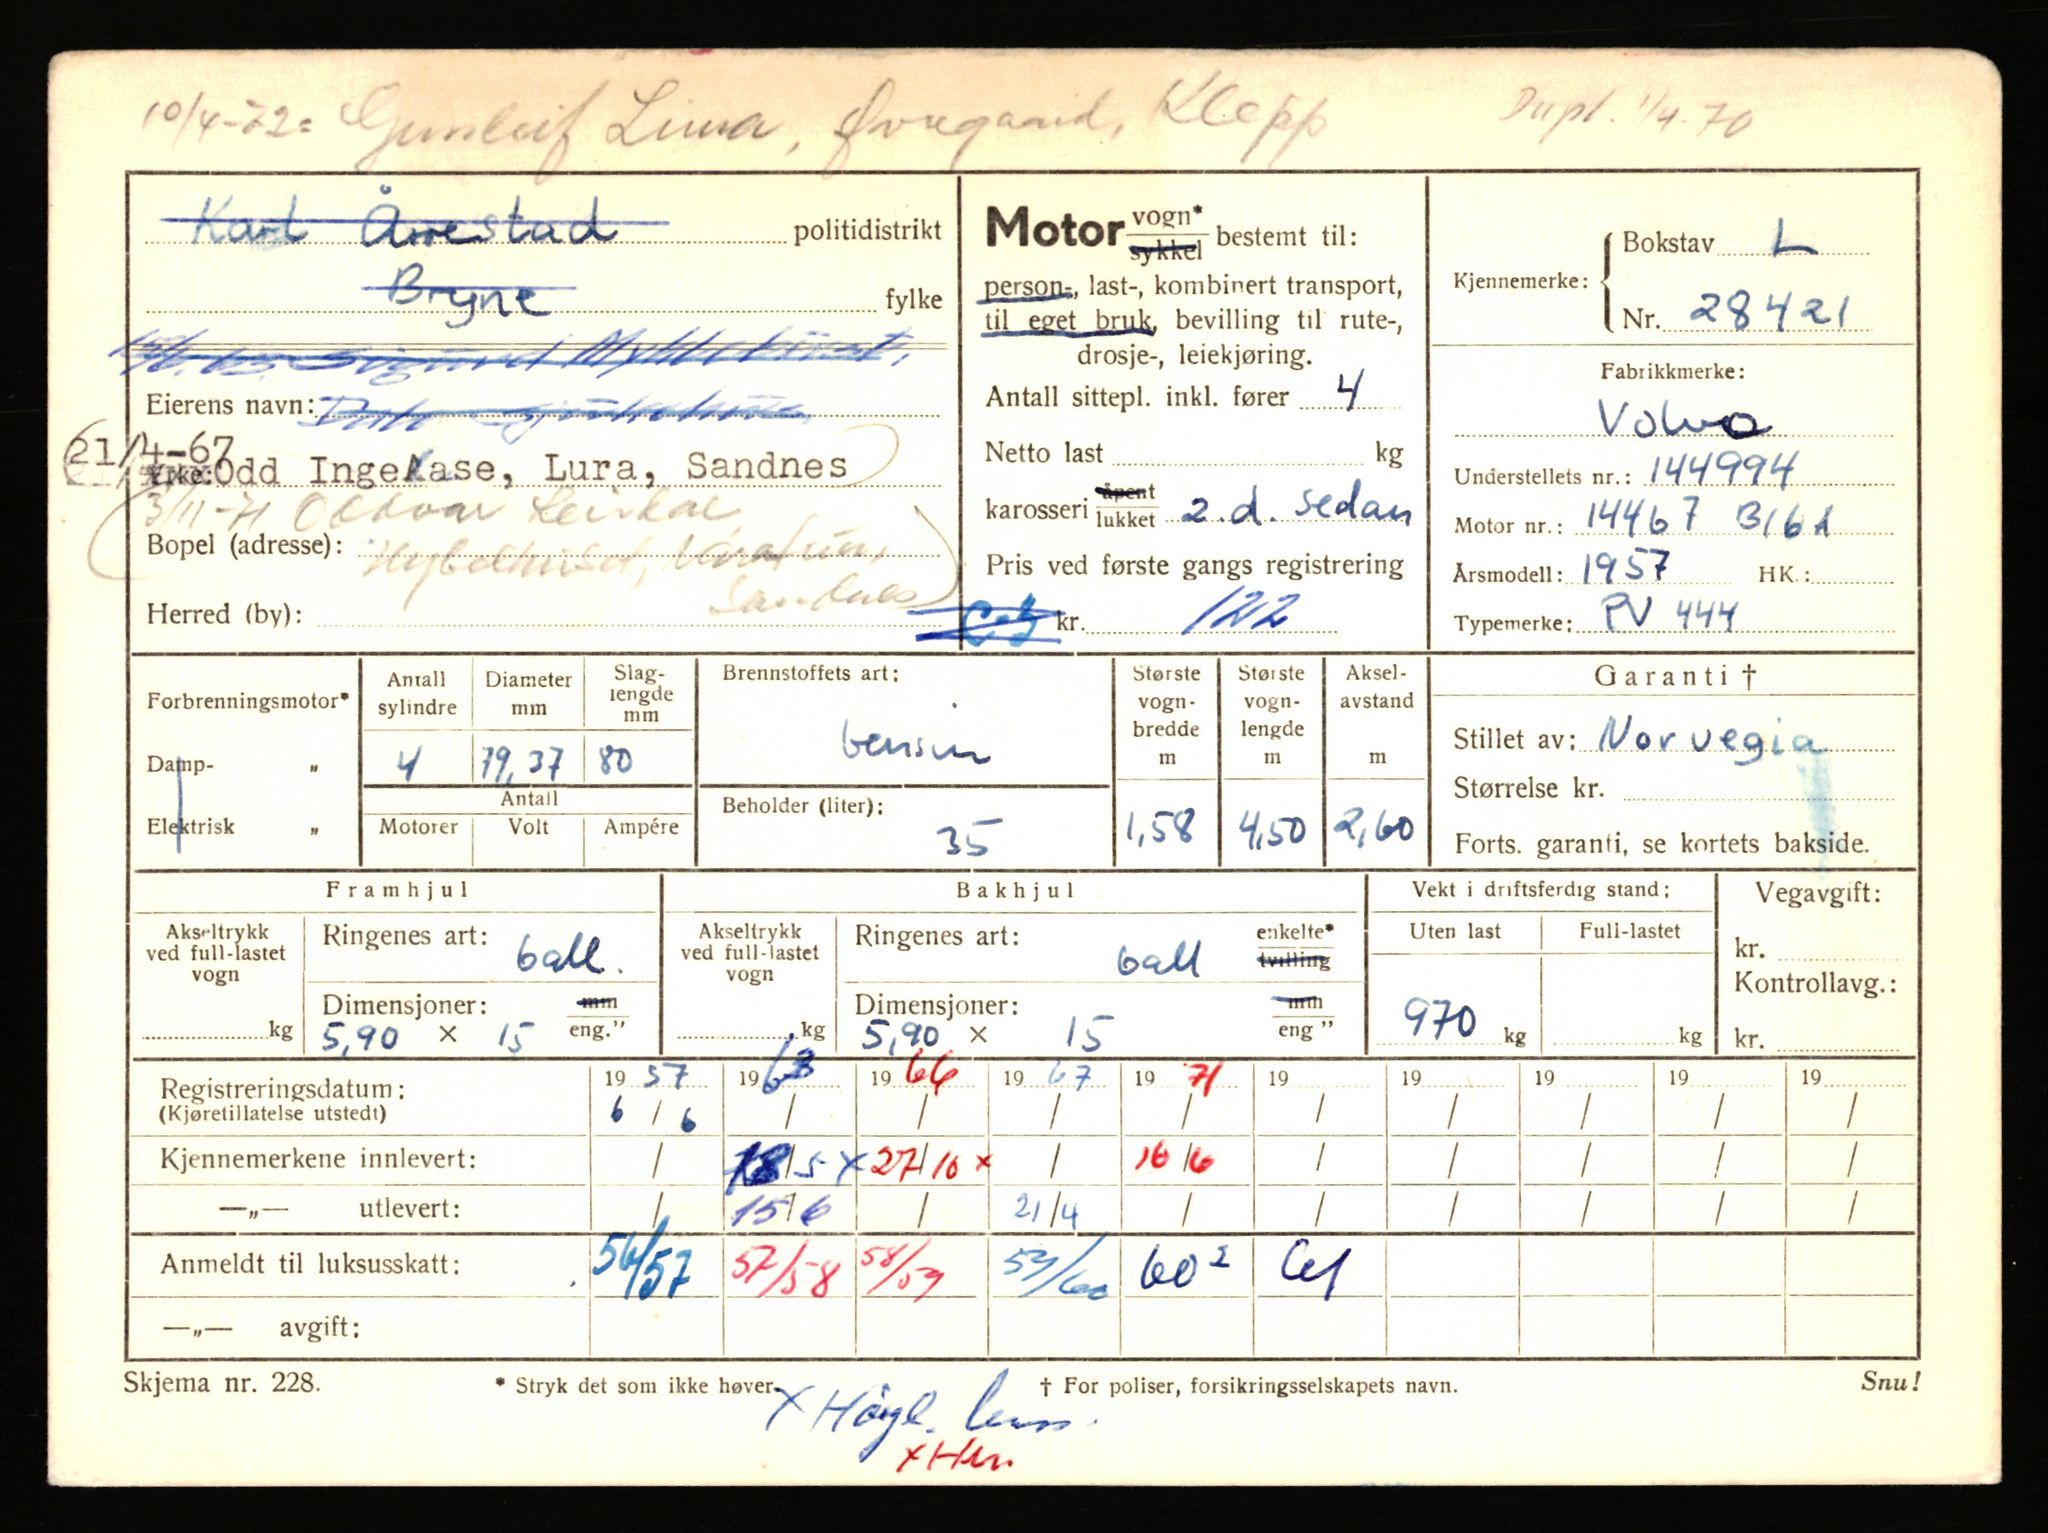 10/4-72: Gunleif Lima, Øvregaard, Klepp Dupl. 1/4-70
Karl Årrestad politidistrikt
Bryne fylke
Sigurd
Eierens navn:
21/4-67 Odd Inge Aase, Lura, Sandnes
3/11-71 Oddvar Leidal
Bopel (adresse): Hybelhuset, Varatun,
Sandnes
Herred (by):
Motor vogn* sykkel bestemt til:
person-, last-, kombinert transport,
til eget bruk, bevilling til rute-,
drosje-, leiekjøring.
Antall sittepl. inkl. fører 4
Netto last kg
karosseri åpent lukket 2.d. sedan
Pris ved første gangs registrering
kr. 122
Kjennemerke: Bokstav L
Nr. 28421
Fabrikkmerke:
Volvo
Understellets nr.: 144994
Motor nr.: 14467 B16A
Årsmodell: 1957 HK.:
Typemerke: PV 444
Forbrenningsmotor*
Damp- „
Elektrisk „
Antall sylindre
4
Diameter mm
79,37
Slag-lengde mm
80
Antall
Motorer Volt Ampére
Brennstoffets art:
bensin
Beholder (liter):
35
Største vogn-bredde m
1,58
Største vogn-lengde m
4,50
Aksel-avstand m
2,60
Garanti †
Stillet av: Norvegia
Størrelse kr.
Forts. garanti, se kortets bakside.
Framhjul
Akseltrykk ved full-lastet vogn
kg
Ringenes art: ball.
Dimensjoner: mm
5,90 × 15 eng."
Bakhjul
Akseltrykk ved full-lastet vogn
kg
Ringenes art: ball enkelte* tvilling
Dimensjoner: mm
5,90 × 15 eng "
Vekt i driftsferdig stand:
Uten last Full-lastet
970 kg kg
Vegavgift:
kr.
Kontrollavg.:
kr.
Registreringsdatum: 19 57 19 63 19 66 19 67 19 71 19 19 19 19 19
(Kjøretillatelse utstedt) 6 / 6 / / / / / / / / /
Kjennemerkene innlevert: / 18/5 x 27/10 x / 16/6 / / / / /
—„— utlevert: / 15/6 / 21/4 / / / / / /
Anmeldt til luksusskatt: 56/57 57/58 58/59 59/60 60² 61
—„— avgift:
Skjema nr. 228. * Stryk det som ikke høver. † For poliser, forsikringsselskapets navn. Snu!
x
x